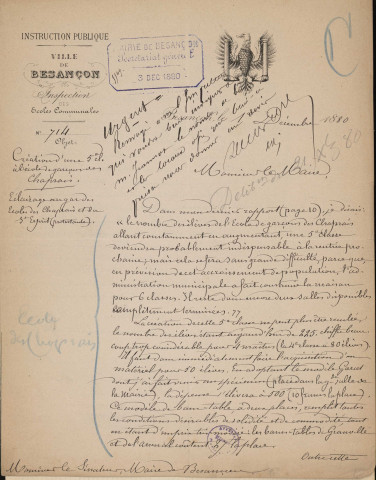 INSTRUCTION PUBLIQUE
VILLE
DE
BESANÇON
Inspection
des
Ecoles Communales
N° 714
Objet
Création d'une 5e cl.
à l'école de garçons des
Chaprais
Eclairage au gaz des
Ecoles des Chaprais et du
St Esprit (protestante)
MAIRIE DE BESANÇON
Secrétariat général
3 DEC 1880
Urgent
Décembre 1880
Monsieur le Maire,
Dans mon dernier rapport (page 10), je disais:
« le nombre des élèves de l'école de garçons des Chaprais
allant constamment en augmentant, une 5e classe
deviendra probablement indispensable à la rentrée pro-
chaine, mais cela se fera sans grande difficulté, parce que,
en prévision de cet accroissement de population, l'ad-
ministration municipale a fait construire la maison
pour 6 classes. Il reste donc encore deux salles disponibles
complètement terminées. »
La création de cette 5e classe ne peut plus être reculée,
le nombre des élèves étant aujourd'hui de 225, chiffre beau-
coup trop considérable pour 4 maîtres (la 4e classe a 80 élèves)
Il faut donc immédiatement faire l'acquisition d'un
matériel pour 50 élèves. En adoptant le modèle Garcet
dont j'ai fait venir un spécimen (placé dans la gde salle de
la Mairie), la dépense s'élèvera à 500f (10 francs la place).
Ce modèle de banc-table à deux places, remplit toutes
les conditions désirables de solidité et de commodité, tout
en étant d'un prix très minime: les bancs-tables de Granville
et de l'arsenal coûtent 17f la place.
Outre cette
Ecole
des Chaprais
Monsieur le Sénateur, Maire de Besançon